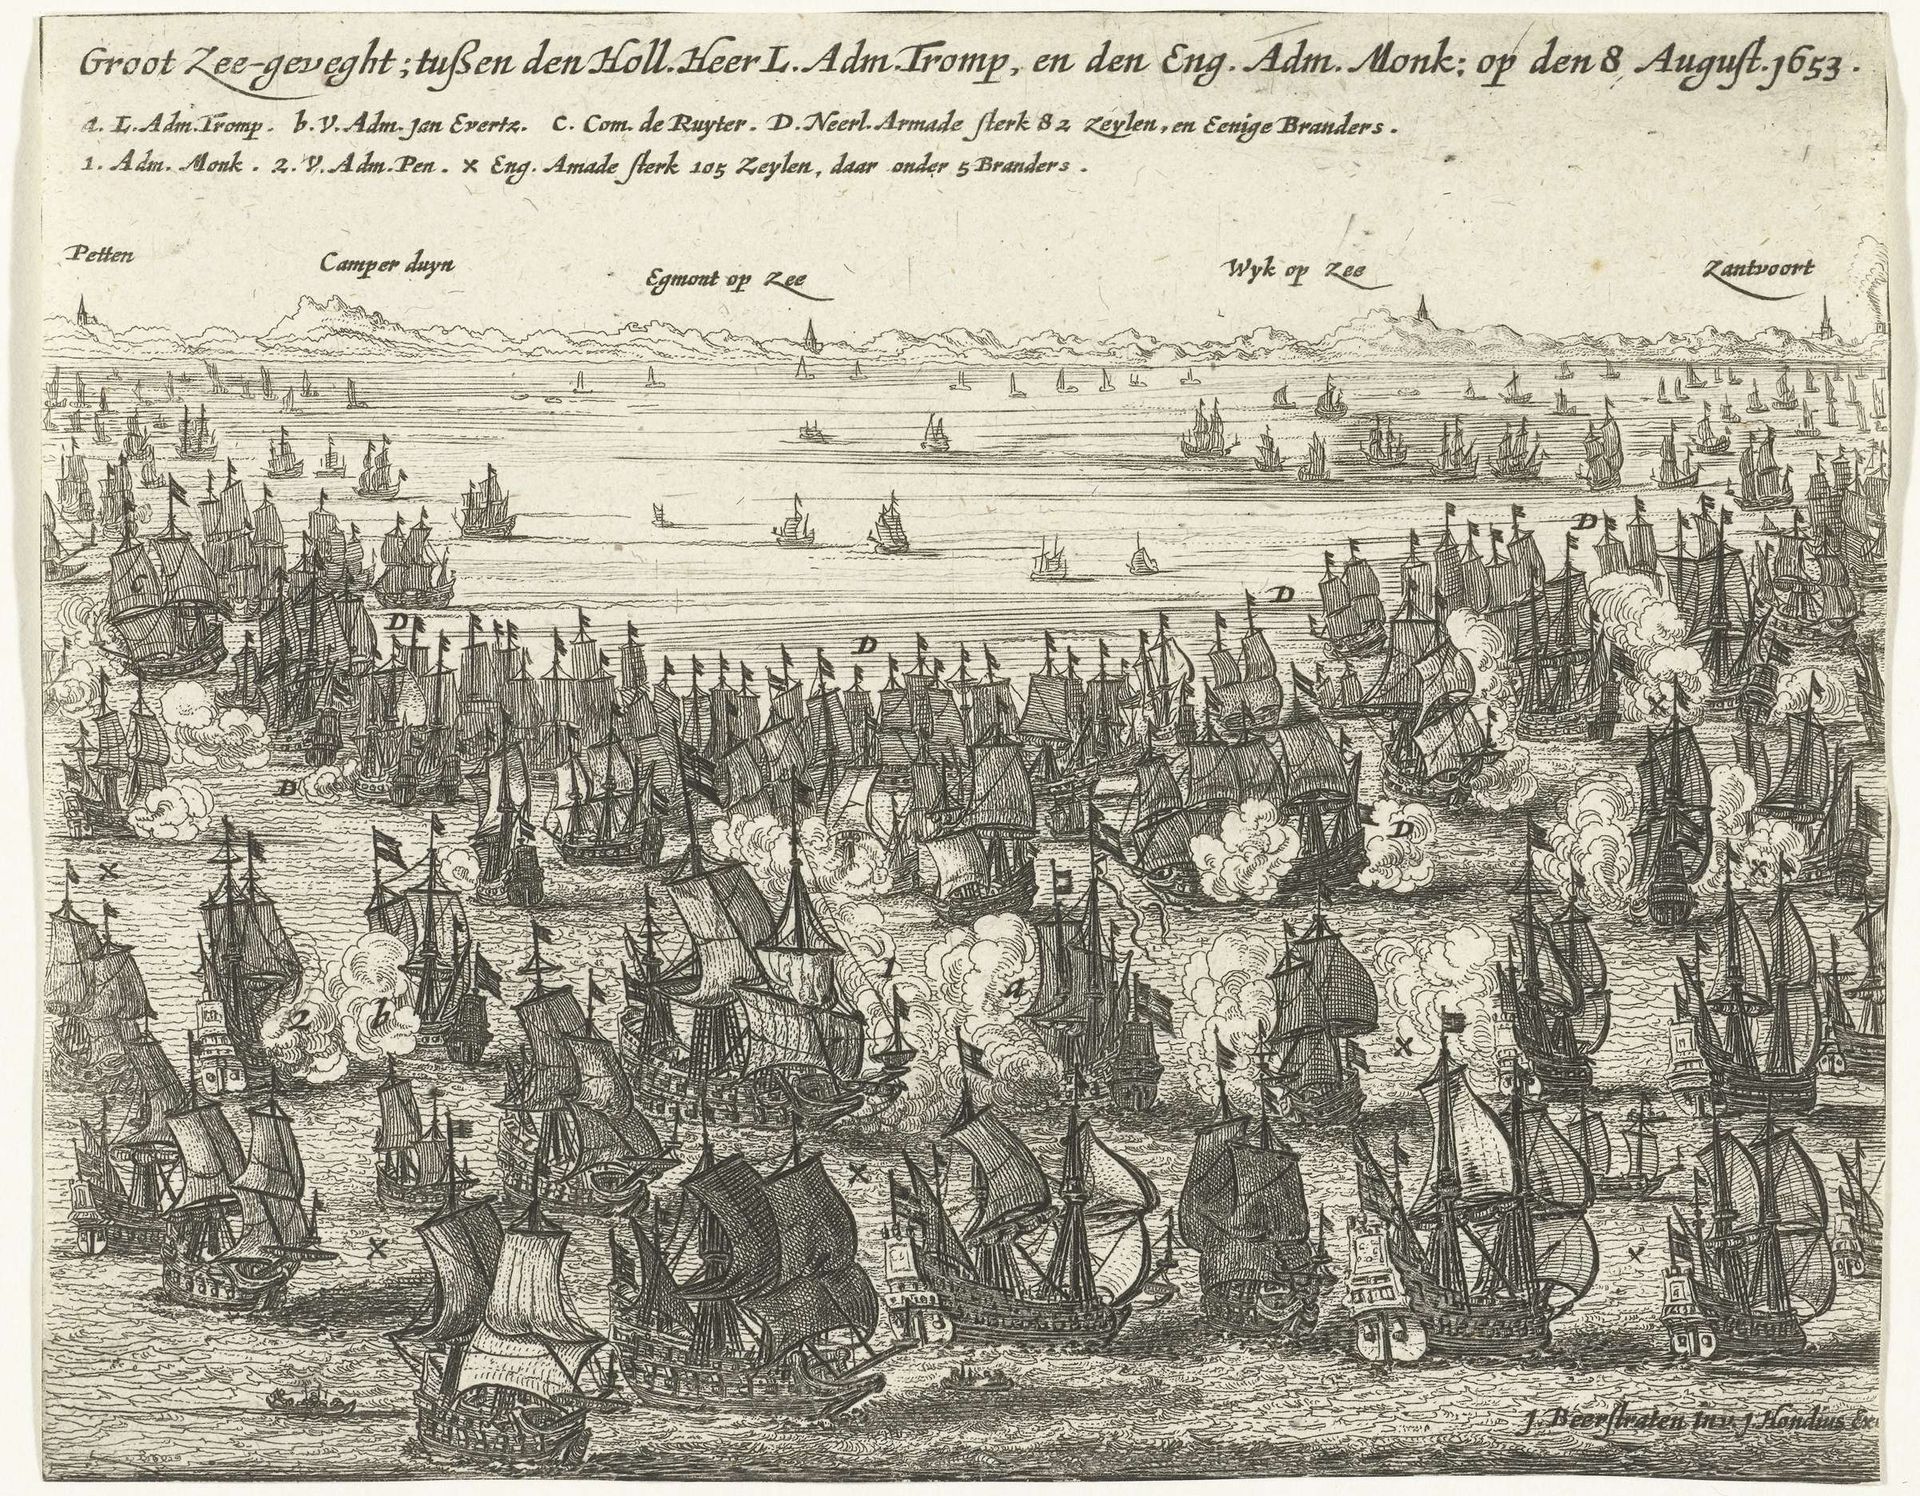 Groot Zee-geveght; tußen den Holl. Heer L. Adm. Tromp, en den Eng. Adm. Monk; op den 8 August. 1653.
a. L. Adm. Tromp. b. V. Adm. Jan Evertz. C. Com. de Ruyter. D. Neerl. Armade sterk 82 Zeylen, en Eenige Branders.
1. Adm. Monk. 2. V. Adm. Pen. x Eng. Amade sterk 105 Zeylen, daar onder 5 Branders.
Petten
Camper duyn
Egmont op Zee
Wyk op Zee
Zantvoort
D
D
C
D
D
x
D
D
x
x
1
a
2
b
x
x
x
x
J. Beerstraten Inv. J. Hondius Ex